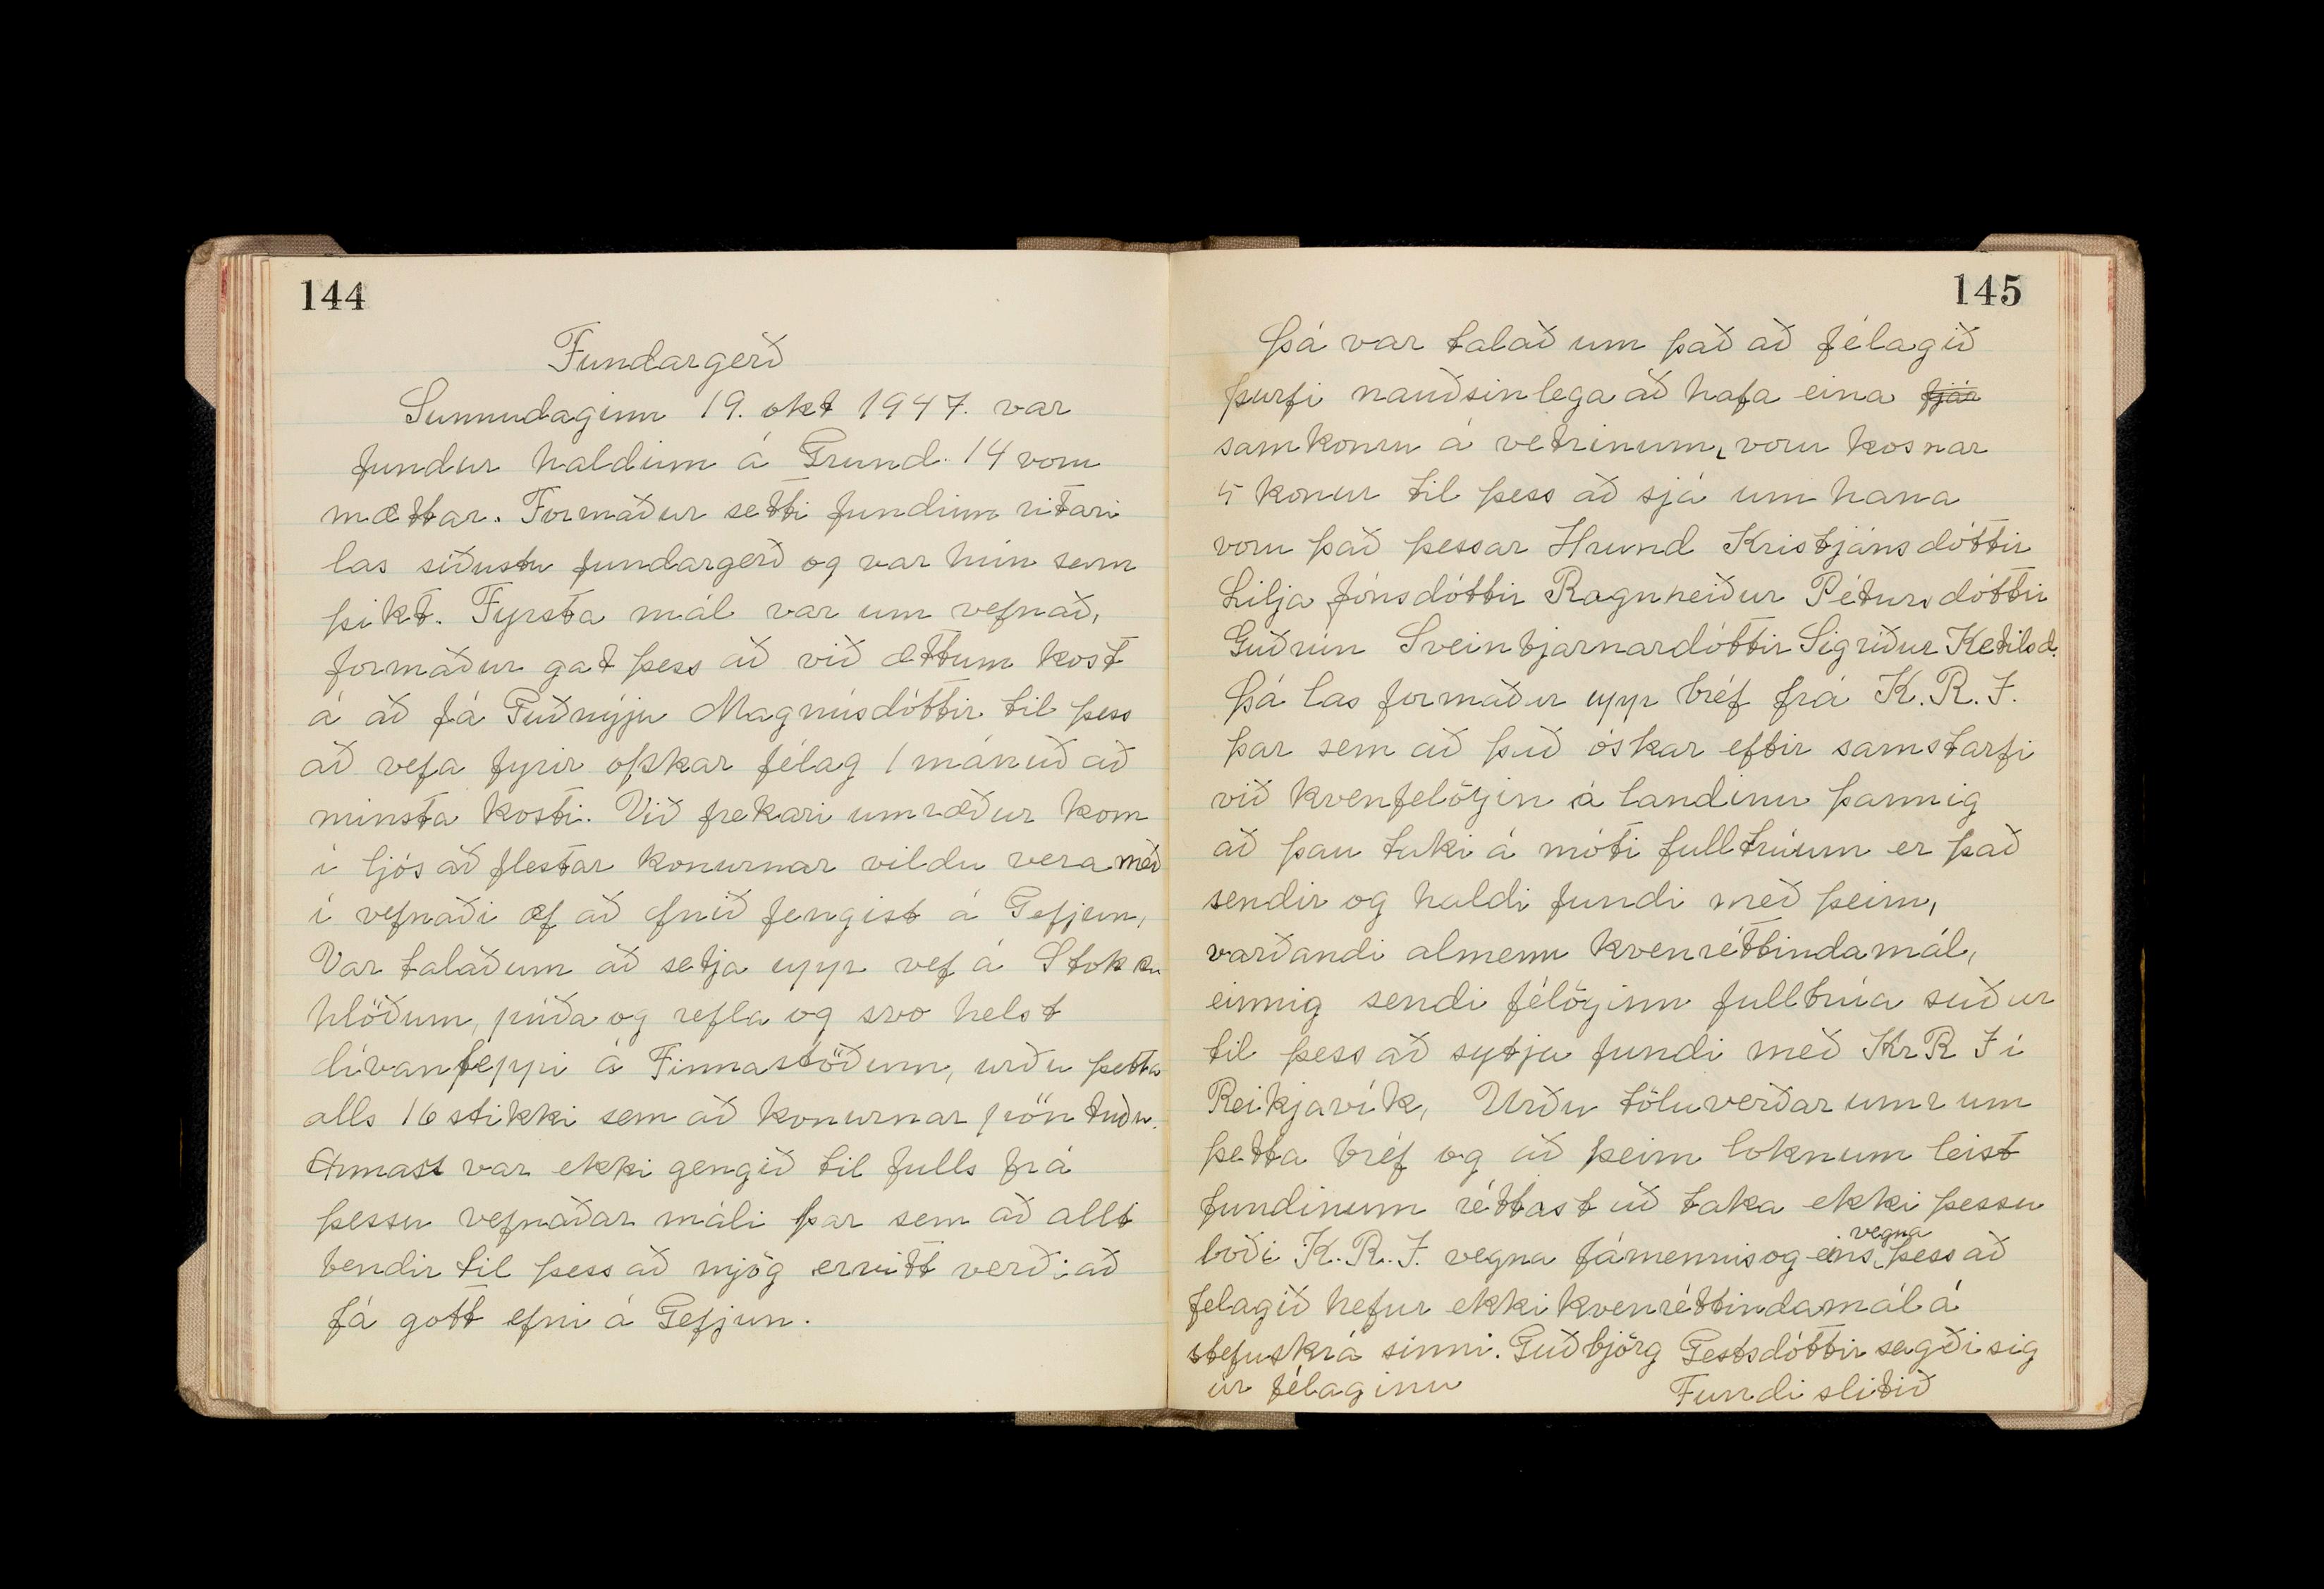 144
Fundargerð
Sunnudaginn 19. okt 1947. var
fundur haldinn á Grund. 14 voru
mættar. Formaður setti fundinn ritari
las síðustu fundargerð og var hún sam
þikt. Fyrsta mál var um vefnað,
formaður gat þess að við ættum kost
á að fá Guðnýju Magnúsdóttir til þess
að vefa fyrir okkar félag 1 mánuð að
minsta kosti. Við frekari umræður kom
í ljós að flestar konurnar vildu vera með
í vefnaði ef að efnið fengist á Gefjun,
Var talað um að setja upp vef á Stokka
hlöðum, púða og refla og svo helst
dívanteppi á Finnastöðum, urðu þetta
alls 16 stikki sem að konurnar pöntuðu.
Annast var ekki gengið til fulls frá
þessu vefnaðar máli þar sem að allt
bendir til þess að mjög erritt verði að
fá gott efni á Gefjun.
145
Þá var talað um það að félagið
þurfi nauðsinlega að hafa eina fjár
samkomu á vetrinum, voru kosnar
5 konur til þess að sjá um hana
voru það þessar Hrund Kristjánsdóttir
Lilja Jónsdóttir Ragnheiður Pétursdóttir
Guðrún Sveinbjarnardóttir Sigríður Ketilsd.
Þá las formaður upp bréf frá K.R.F.
þar sem að það óskar eftir samstarfi
við kvenfelögin á landinu þannig
að þau taki á móti fulltrúum er það
sendir og haldi fundi með þeim,
varðandi almenn kvenréttindamál,
einnig sendi félöginn fulltrúa suður
til þess að sytja fundi með Kr R F í
Reikjavík, Urðu töluverðar umr um
þetta bréf og að þeim loknum leist
fundinum réttast að taka ekki þessu
boði K.R.F. vegna fámennis og eins vegna þess að
felagið hefur ekki kvenréttindamál á
stefuskrá sinni. Guðbjörg Gestsdóttir sagði sig
úr félaginu Fundi slitið